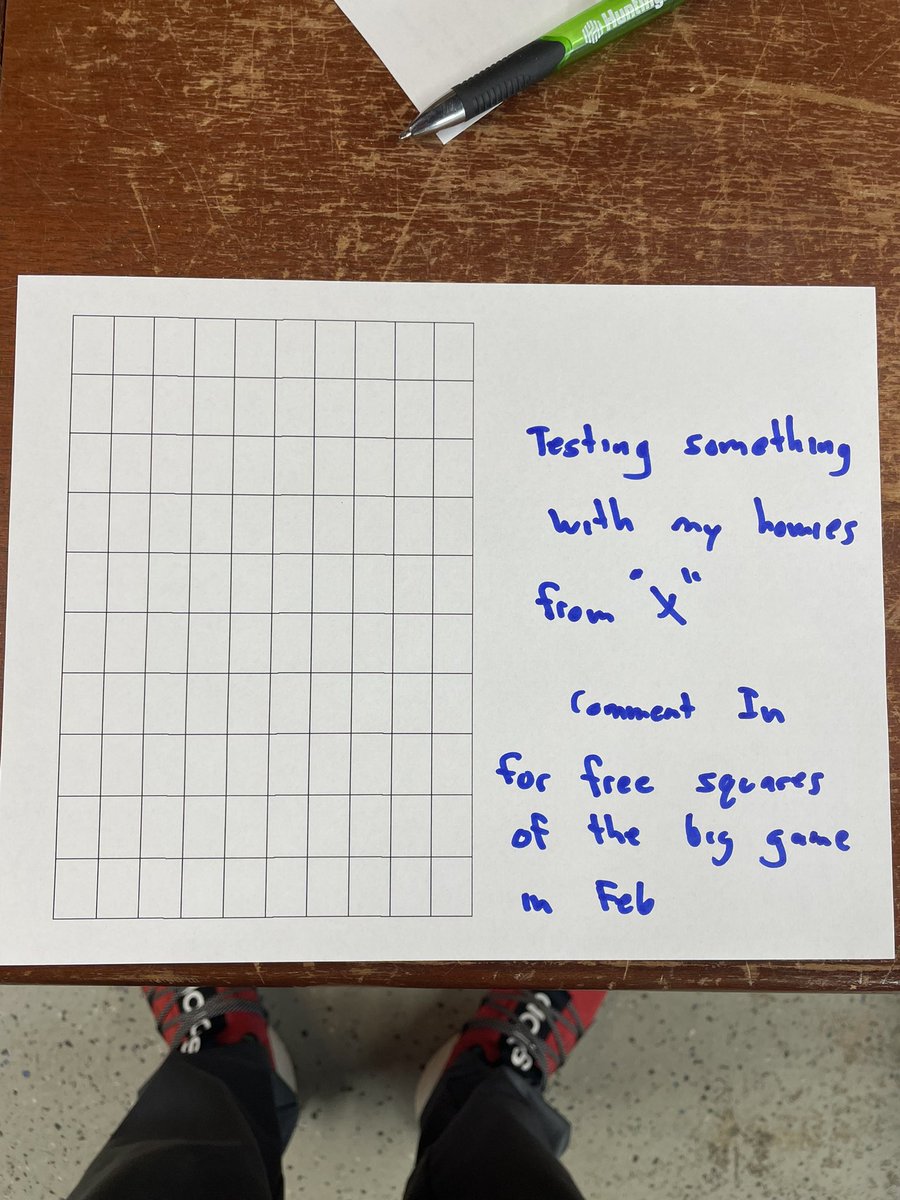 Hunting
Testing something
with my homies
from "X"
Comment In
for free squares
of the big game
in Feb